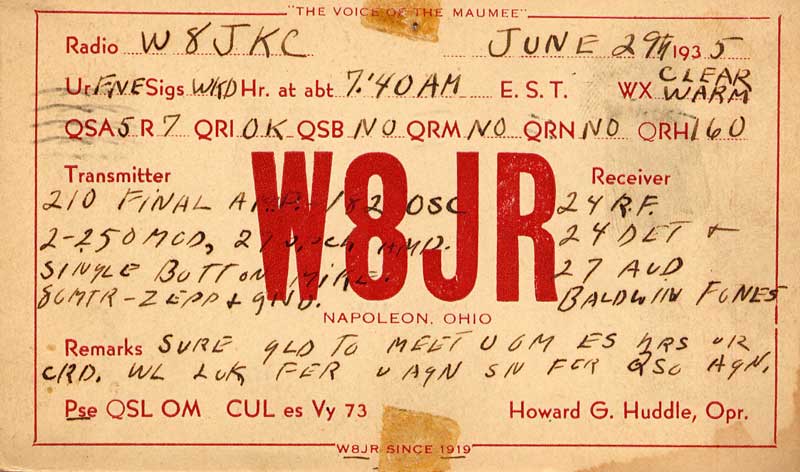 "THE VOICE OF THE MAUMEE"
Radio W8JKC JUNE 29TH 1935
Ur FIVE Sigs WKD Hr. at abt 7:40 AM E. S. T. WX CLEAR WARM
QSA 5 R 7 QRI OK QSB NO QRM NO QRN NO QRH 160
Transmitter Receiver
W8JR
210 FINAL AMP. 182 OSC 24 R.F.
2-250 MOD, AMP. 24 DET +
SINGLE BUTTON MIKE. 27 AUD
80MTR-ZEPP + GND. BALDWIN FONES
NAPOLEON, OHIO
Remarks SURE GLD TO MEET U OM ES HRS UR
CRD. WL LUK FER U AGN SN FER QSO AGN.
Pse QSL OM CUL es Vy 73 Howard G. Huddle, Opr.
W8JR SINCE 1919